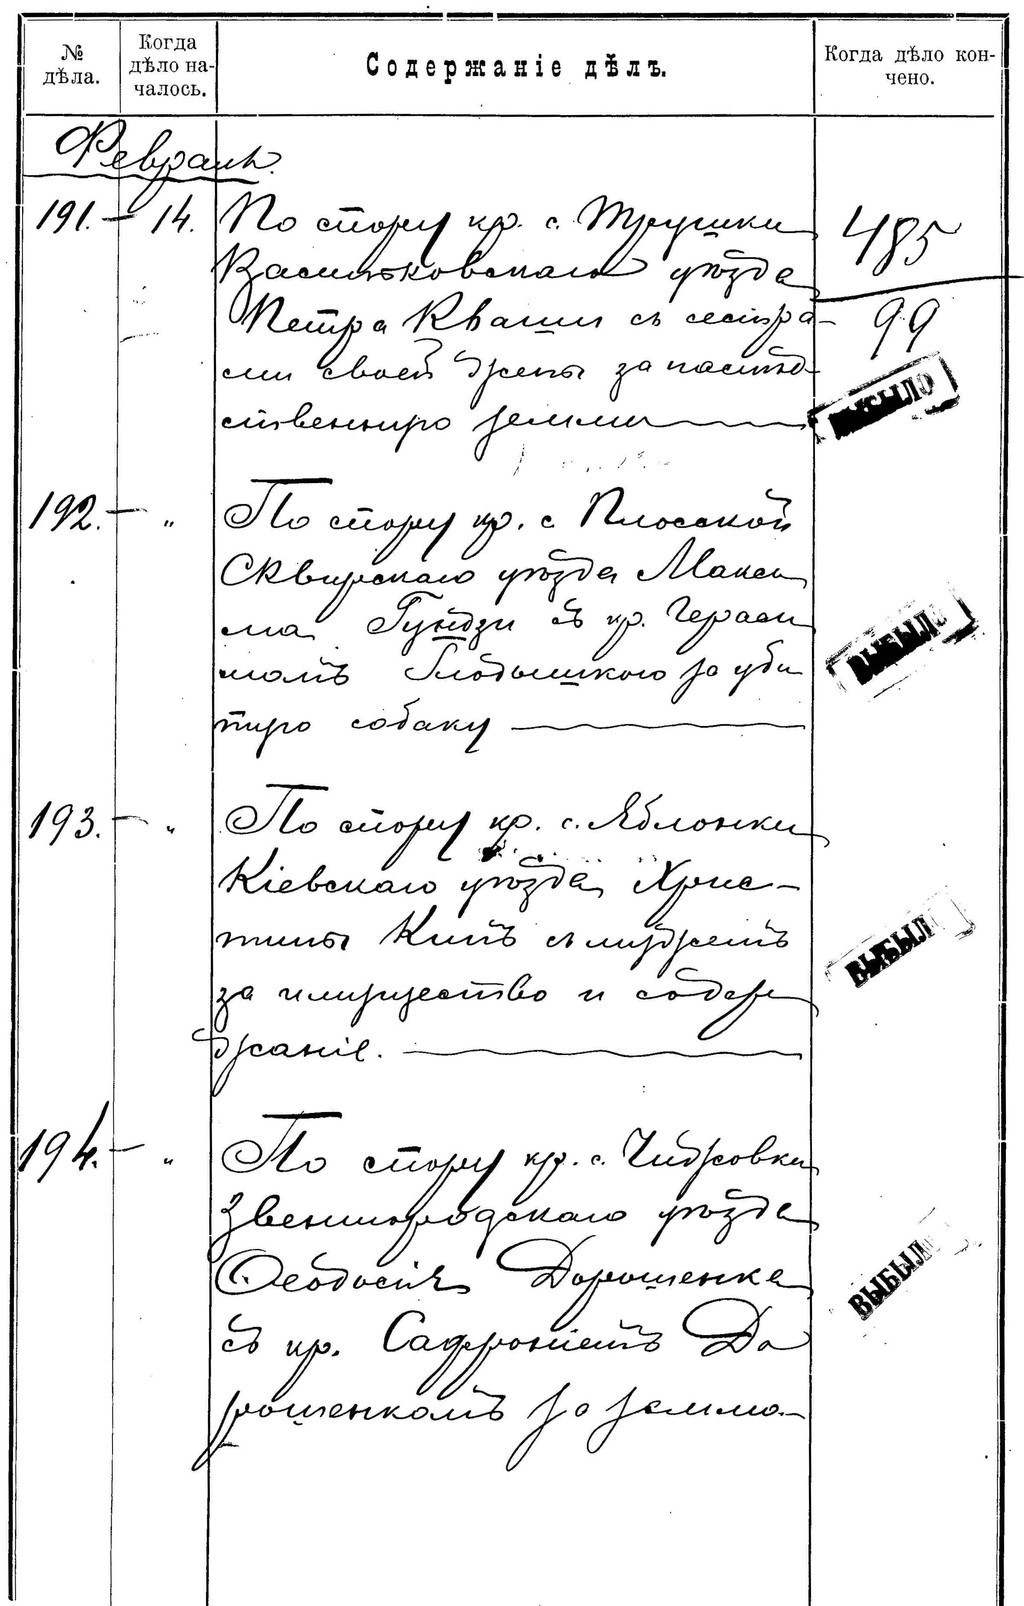 № дѣла.
Когда дѣло на-
чалось.
Содержаніе дѣлъ.
Когда дѣло кон-
чено.
Февраль.
191. — 14. По спору кр. с. Трушки
Васильковскаго уѣзда
Петра Кваши съ сестра-
ми своей жены за наслѣд-
ственную землю
485
99
ВЫБЫЛО
192. — „ По спору кр. с. Плоской
Сквирскаго уѣзда Макси
ма Гундзи съ кр. Гераси
момъ Глобышкою за уби
тую собаку
ВЫБЫЛО
193. — „ По спору кр. с. Яблонки
Кіевскаго уѣзда Хрис-
тины Кить съ мужемъ
за имущество и содер
жаніе.
ВЫБЫЛО
194. — „ По спору кр. с. Чижовки
Звенигородскаго уѣзда
Ѳеодосія Дорошенка
съ кр. Сафроніемъ До
рошенкомъ за землю
ВЫБЫЛО